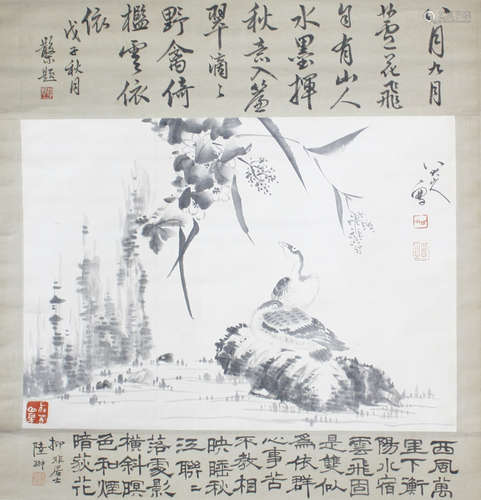 八月九月
蘆花飛
自有山人
水墨揮
秋意入簾
翠滴〻
野禽倚
檻雲依
依
戊子秋月
題
八大山人寫
西風萬
里下衡
陽水宿
雲飛固
是雙似
為依群
心事苦
不教相
映睡秋
江聯〻
落寞影
橫斜暝
色和煙
暗荻花
居士
陸